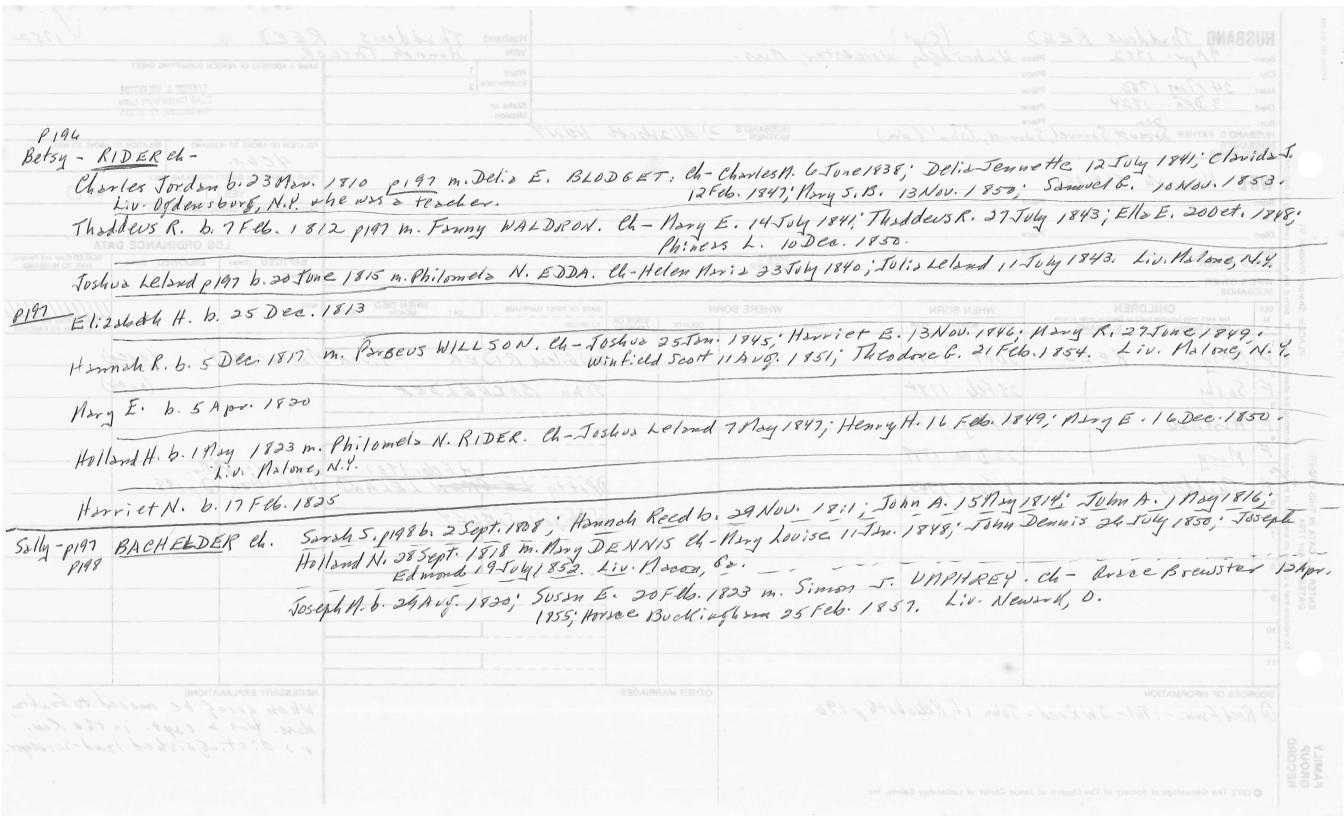 p196
Betsy - RIDER ch-
Charles Jordan b. 23 Mar. 1810 p197 m. Delia E. BLODGET: Ch-Charles A. 6 June 1838; Delia Jennette 12 July 1841; Clarida J.
Liv. Ogdensburg, N.Y. where he was a teacher. 12 Feb. 1847; Mary S.B. 13 Nov. 1850; Samuel C. 10 Nov. 1853.
Thaddeus R. b. 7 Feb. 1812 p197 m. Fanny WALDRON. Ch- Mary E. 14 July 1841; Thaddeus R. 27 July 1843; Ella E. 20 Oct. 1848;
Phineas L. 10 Dec. 1850.
Joshua Leland p197 b. 20 June 1815 m. Philomela N. EDDA. Ch-Helen Maria 23 July 1840; Julia Leland 11 July 1843. Liv. Malone, N.Y.
p197 Elizabeth H. b. 25 Dec. 1813
Hannah R. b. 5 Dec. 1817 m. WILLSON. Ch-Joshua 25 Jan. 1845; Harriet E. 13 Nov. 1846; Mary R. 27 June 1849.
Winfield Scott 11 Aug. 1851; Theodore G. 21 Feb. 1854. Liv. Malone, N.Y.
Mary E. b. 5 Apr. 1820
Holland H. b. 1 May 1823 m. Philomela N. RIDER. Ch-Joshua Leland 7 May 1847; Henry H. 16 Feb. 1849; Mary E. 16 Dec. 1850.
Liv. Malone, N.Y.
Harriet N. b. 17 Feb. 1825
Sally - p197 BACHELDER ch. Sarah S. p198 b. 2 Sept. 1808; Hannah Reed b. 29 Nov. 1811; John A. 15 May 1814; John A. 1 May 1816;
p198 Holland N. 28 Sept. 1818 m. Mary DENNIS Ch-Mary Louise 11 Jan. 1848; John Dennis 26 July 1850; Joseph
Edmond 19 July 1852. Liv. Macon, Ga.
Joseph M. b. 24 Aug. 1820; Susan E. 20 Feb. 1823 m. Simon J. UMPHREY. Ch- Grace Brewster 12 Apr.
1855; Horace Buckingham 25 Feb. 1857. Liv. Newark, O.